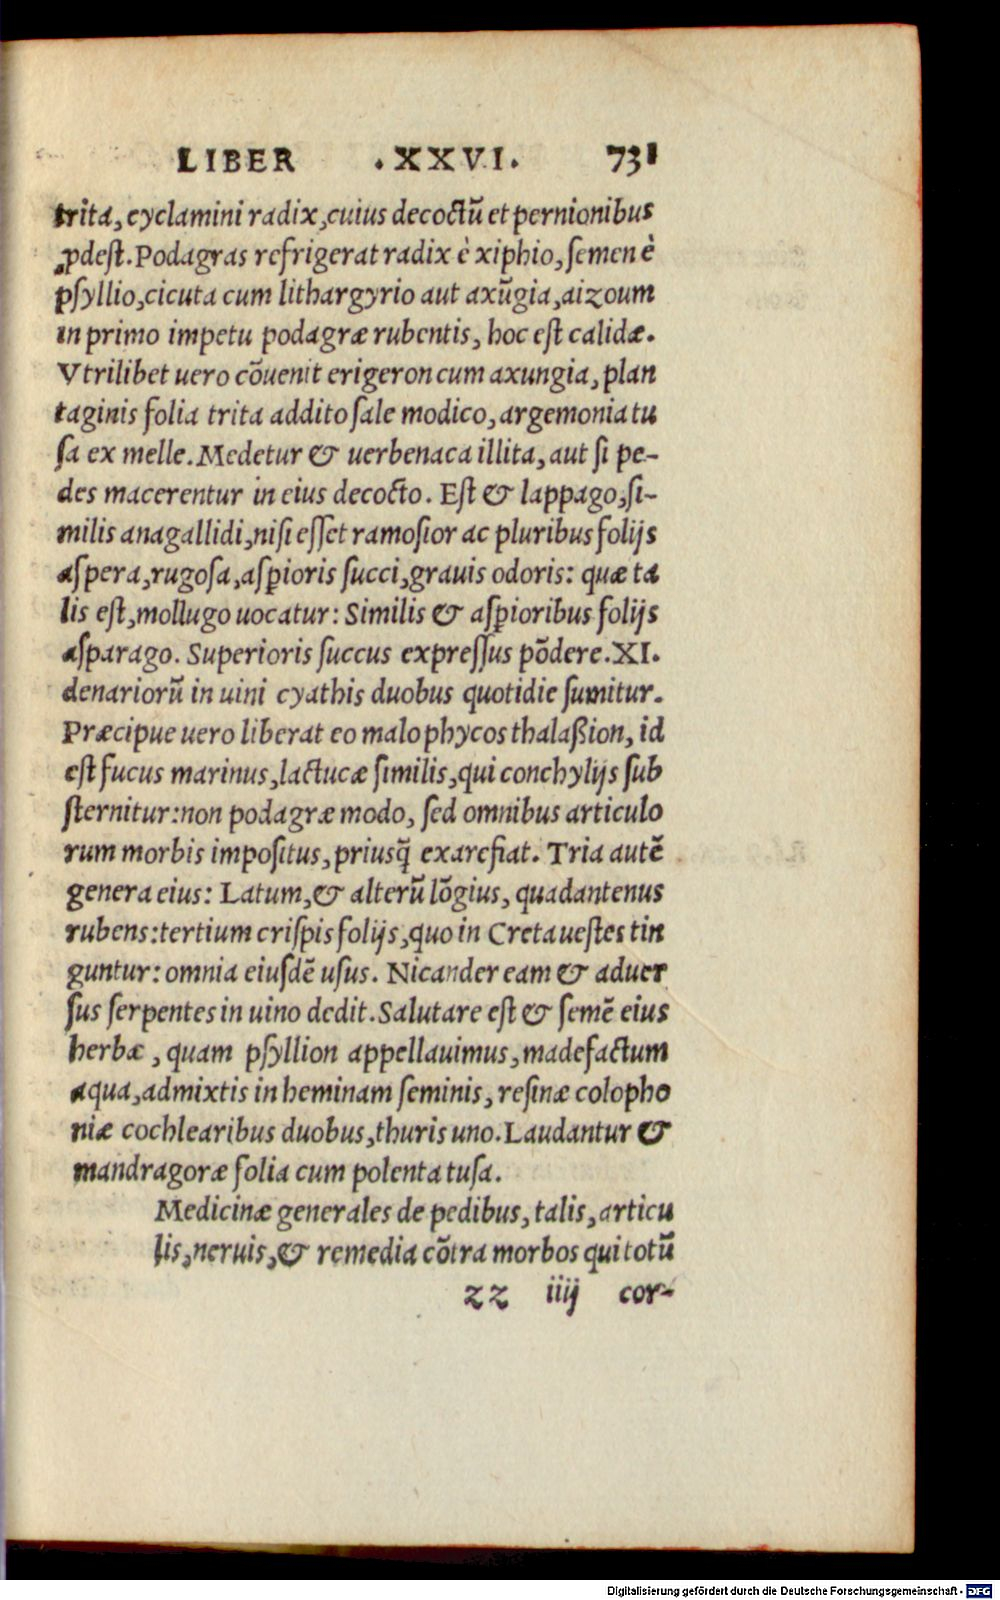 LIBER .XXVI. 731
trita, cyclamini radix, cuius decoctũ et pernionibus
ꝓdest. Podagras refrigerat radix è xiphio, semen è
psyllio, cicuta cum lithargyrio aut axũgia, aizoum
in primo impetu podagræ rubentis, hoc est calidæ.
Vtrilibet uero cõuenit erigeron cum axungia, plan
taginis folia trita addito sale modico, argemonia tu
sa ex melle. Medetur & uerbenaca illita, aut si pe-
des macerentur in eius decocto. Est & lappago, si-
milis anagallidi, nisi esset ramosior ac pluribus folijs
aspera, rugosa, asꝑioris succi, grauis odoris: quæ ta
lis est, mollugo uocatur: Similis & asꝑioribus folijs
asparago. Superioris succus expressus põdere. XI.
denariorũ in uini cyathis duobus quotidie sumitur.
Præcipue uero liberat eo malo phycos thalaßion, id
est fucus marinus, lactucæ similis, qui conchylijs sub
sternitur: non podagræ modo, sed omnibus articulo
rum morbis impositus, priusq̃ exarefiat. Tria autẽ
genera eius: Latum, & alterũ lõgius, quadantenus
rubens: tertium crispis folijs, quo in Creta uestes tin
guntur: omnia eiusdẽ usus. Nicander eam & aduer
sus serpentes in uino dedit. Salutare est & semẽ eius
herbæ, quam psyllion appellauimus, madefactum
aqua, admixtis in heminam seminis, resinæ colopho
niæ cochlearibus duobus, thuris uno. Laudantur &
mandragoræ folia cum polenta tusa.
Medicinæ generales de pedibus, talis, articu
lis, neruis, & remedia cõtra morbos qui totũ
zz iiij cor-
Digitalisierung gefördert durch die Deutsche Forschungsgemeinschaft - DFG